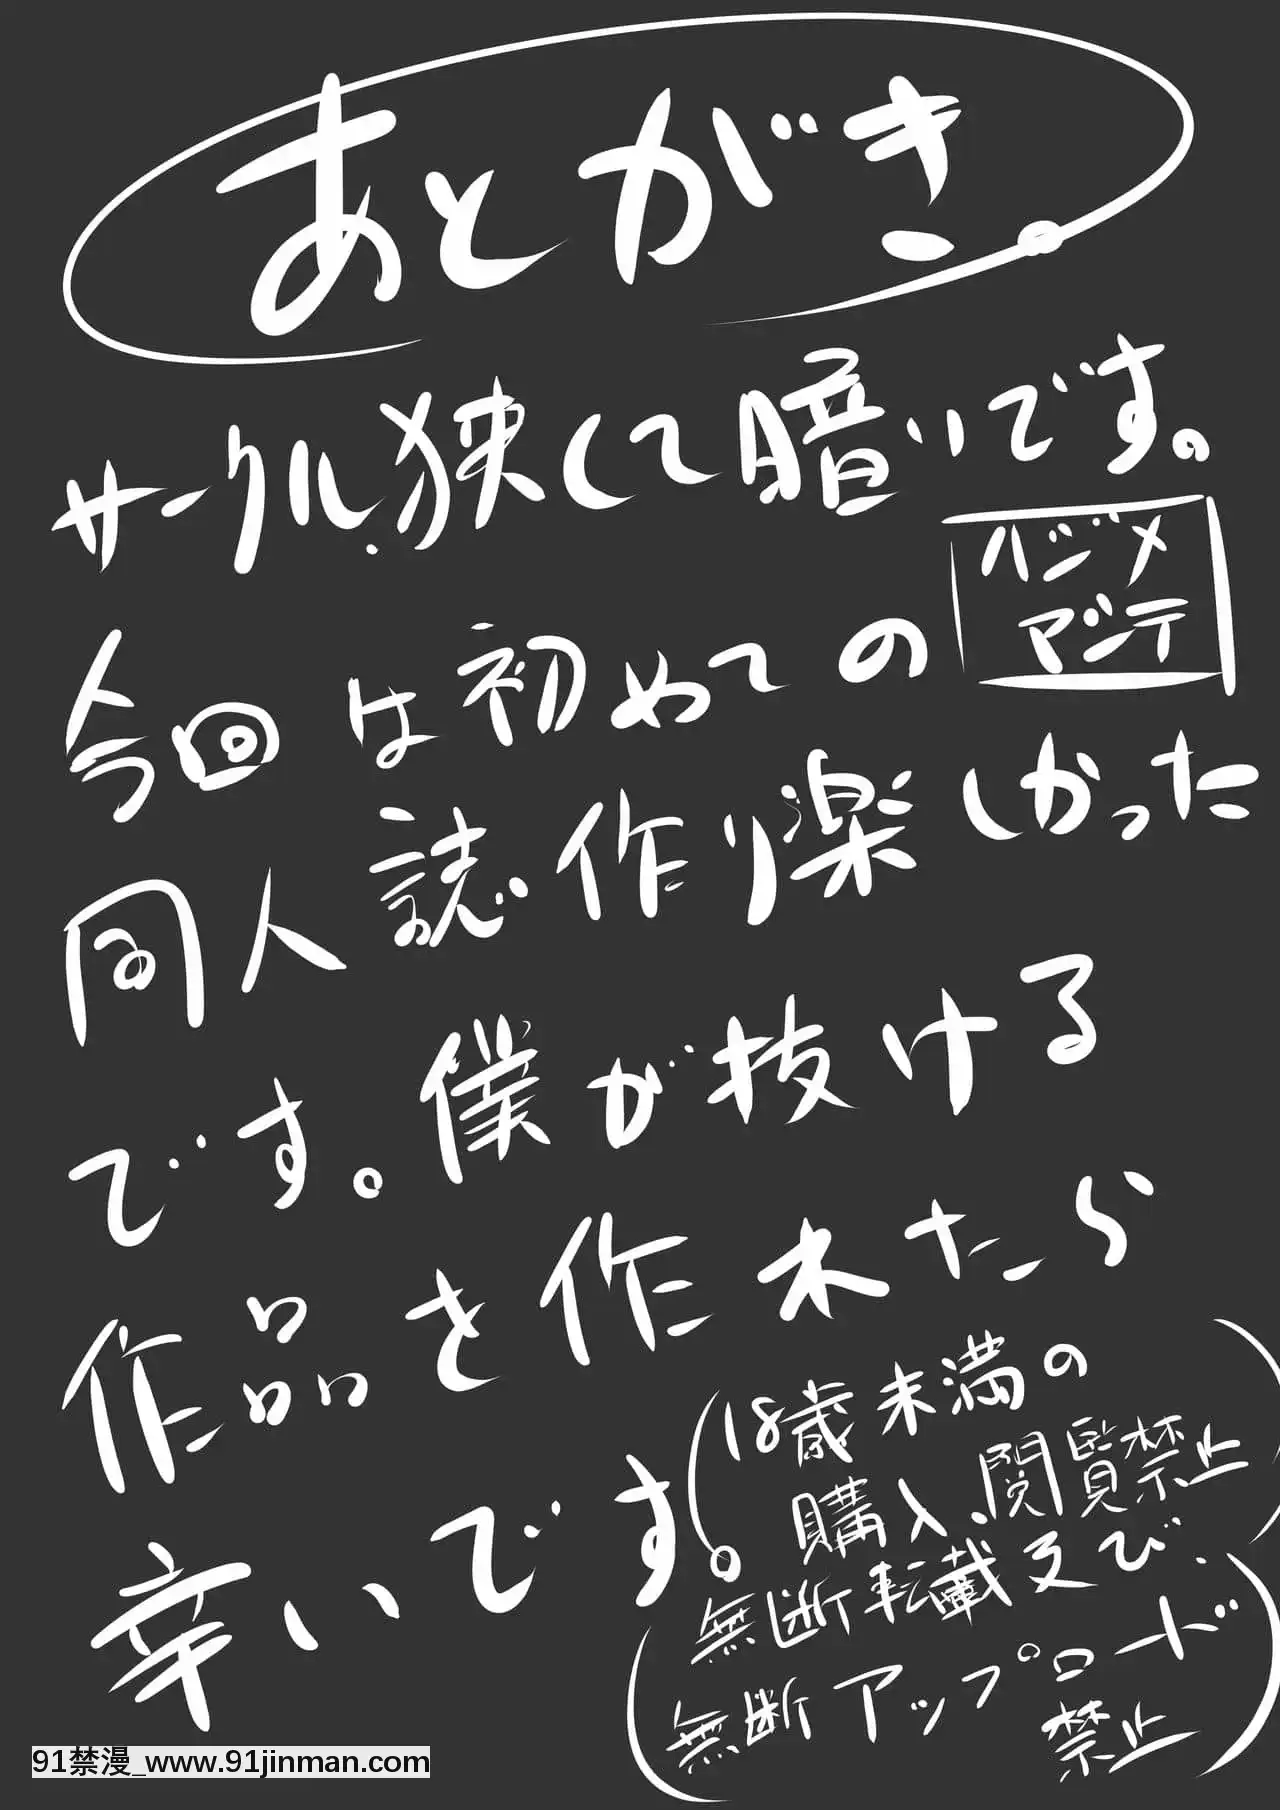 あとがき。
サークル.狭くて暗いです。
ハジメ
マシテ
今回は初めての
同人誌作り楽しかった
です。僕が抜ける
作品を作れたら
幸いです。
(18歳未満の
購入、閲覧禁止)
(無断転載及び
無断アップロード
禁止)
91禁漫_www.91jinman.com